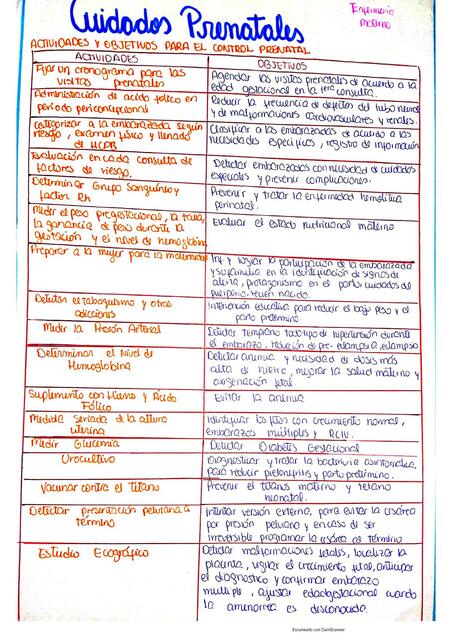 Cuidados Prenatales
Enfermería
materno
ACTIVIDADES Y OBJETIVOS PARA EL CONTROL PRENATAL
ACTIVIDADES
OBJETIVOS
Fijar un cronograma para las
visitas prenatales
Agendar las visitas prenatales de acuerdo a la
edad gestacional en la 1era consulta.
Administración de acido fólico en
periodo periconcepcional
Reducir la frecuencia de defectos del tubo neural
y de malformaciones cardiovasculares y renales.
Categorizar a la embarazada según
riesgo, examen físico y llenado
de HCPB
Clasificar a las embarazadas de acuerdo a las
necesidades especificas, registro de información
Evaluación en cada consulta de
factores de riesgo.
Detectar embarazadas con necesidad de cuidados
especiales y prevenir complicaciones.
Determinar Grupo sanguíneo y
factor Rh
Prevenir y tratar la enfermedad hemolítica
perinatal.
Medir el peso pregestacional, la talla,
la ganancia de peso durante la
gestación y el nevel de hemoglobina
Evaluar el estado nutricional materno
Preparar a la mujer para la maternidad
Inf y lograr la participación de la embarazada
y su familia en la identificación de signos de
alerta, protagonismo en el parto cuidados del
puerperio. recien nacido.
Detectar el tabaquismo y otras
adicciones
Intervención educativa para reducir el bajo peso y el
parto pretermino.
Medir la Presión Arterial
Detectar temprano todo tipo de hipertensión durante
el embarazo, reducción de pre-eclampsia, eclampsia
Determinar el Nivel de
Hemoglobina
Detectar anemia y necesidad de dosis más
alta de hierro, mejorar la salud materno y
oxigenación fetal
Suplemento con Hierro y Ácido
Fólico
Evitar la anemia
Medida seriada de la altura
uterina
Identificar los fetos con crecimiento normal,
embarazos múltiples y RCIU.
Medir Glucemia
Detectar Diabetes Gestacional
Urocultivo
Diagnosticar y tratar la bacteriuria asintomatica,
para reducir pielonefritis y parto pretérmino.
Vacunar contra el tétano
Prevenir el tétanos materno y tetano
neonatal.
Detectar presentación pelviana a
término
Intentar versión externa, para evitar la cesárea
por presión pelviana y en caso de ser
irreversible programar la cesárea a término
Estudio Ecográfico
Detectar malformaciones fetales, localizar la
placenta, vigilar el crecimiento fetal, anticipar
el diagnostico y confirmar embarazo
multiple, ajustar edad gestacional cuando
la amenorrea es desconocida.
Escaneado con CamScanner